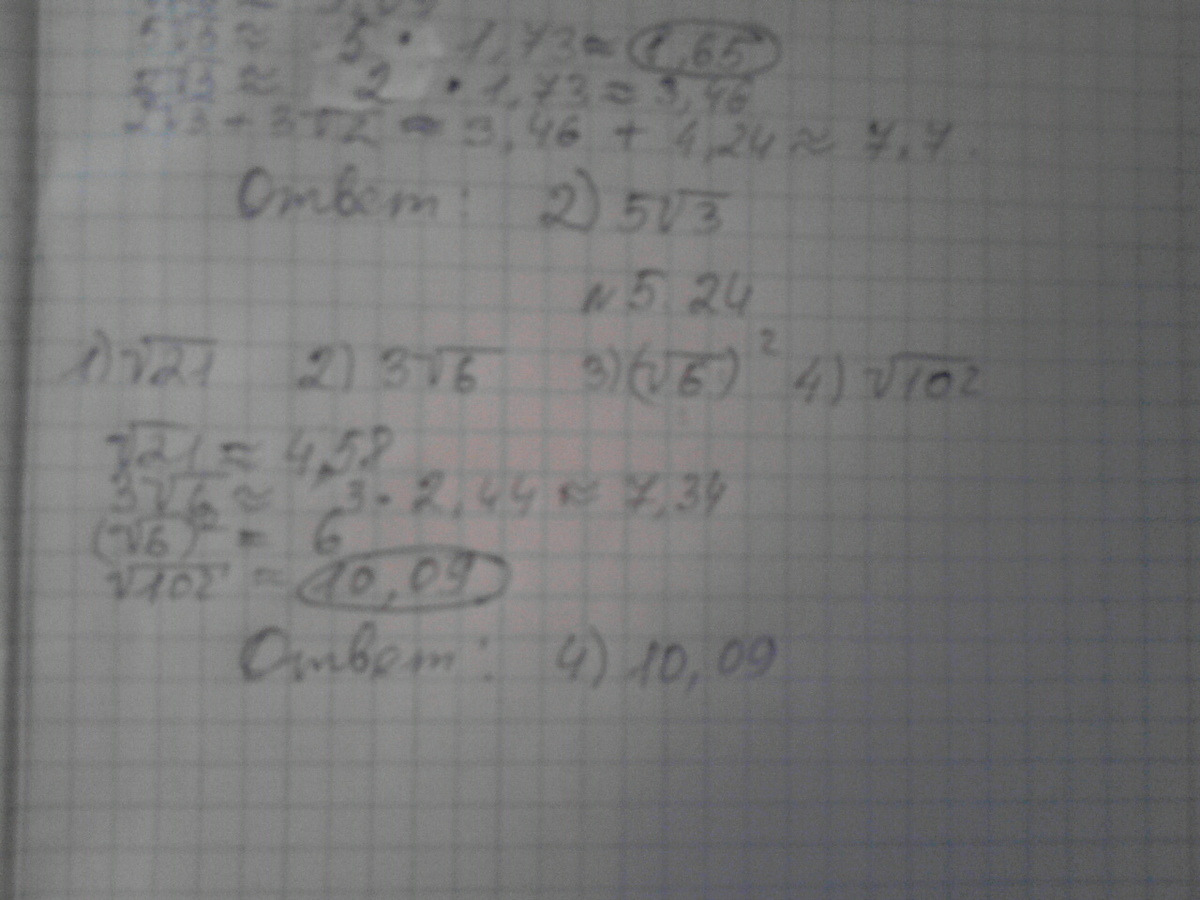 5√3 ≈ 5 · 1,73 ≈ 1,65
≈ 2 · 1,73 ≈ 3,46
2√3 + 3√2 ≈ 3,46 + 4,24 ≈ 7,7.
Ответ: 2) 5√3
№ 5.24
1) √21 2) 3√6 3) (√6)² 4) √102
√21 ≈ 4,58
3√6 ≈ 3 · 2,44 ≈ 7,34
(√6)² = 6
√102 ≈ 10,09
Ответ: 4) 10,09